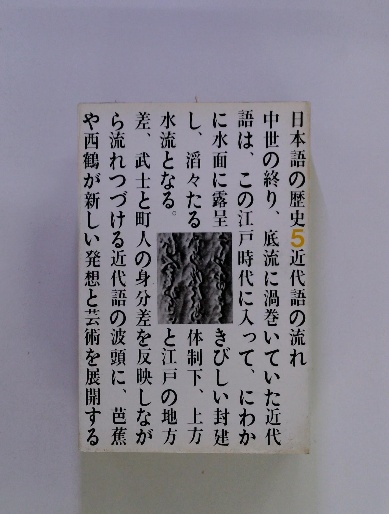 日本語の歴史5近代語の流れ
中世の終り、底流に渦巻いていた近代
語は、この江戸時代に入って、にわか
に水面に露呈 きびしい封建
し、滔々たる 体制下、上方
水流となる。 と江戸の地方
差、武士と町人の身分差を反映しなが
ら流れつづける近代語の波頭に、芭蕉
や西鶴が新しい発想と芸術を展開する